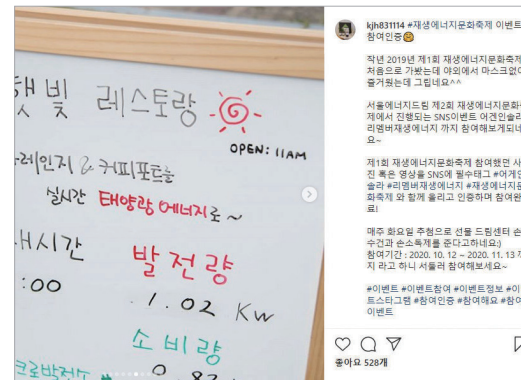 햇빛 레스토랑
OPEN: 11AM
커피포트를
실시간 태양광 에너지로~
시간
발전량
:00
1.02 Kw
소비량
kjh831114 #재생에너지문화축제 이벤트
참여인증
작년 2019년 제1회 재생에너지문화축제
처음으로 가봤는데 야외에서 마스크없이
즐거웠는데 그립네요^^
서울에너지드림 제2회 재생에너지문화
제에서 진행되는 SNS이벤트 어겐인솔라
리멤버재생에너지 까지 참여해보게되네
요~
제1회 재생에너지문화축제 참여했던 사
진 혹은 영상을 SNS에 필수태그 #어게인
솔라 #리멤버재생에너지 #재생에너지문
화축제 와 함께 올리고 인증하며 참여완
료!
매주 추첨으로 선물 드림센터 손
수건과 손소독제를 준다고하네요:)
참여기간 : 2020. 10. 12 ~ 2020. 11. 13 까
지 라고 하니 서둘러 참여해보세요~
#이벤트 #이벤트참여 #이벤트정보 #이
트스타그램 #참여인증 #참여해요 #참여
이벤트
좋아요 528개